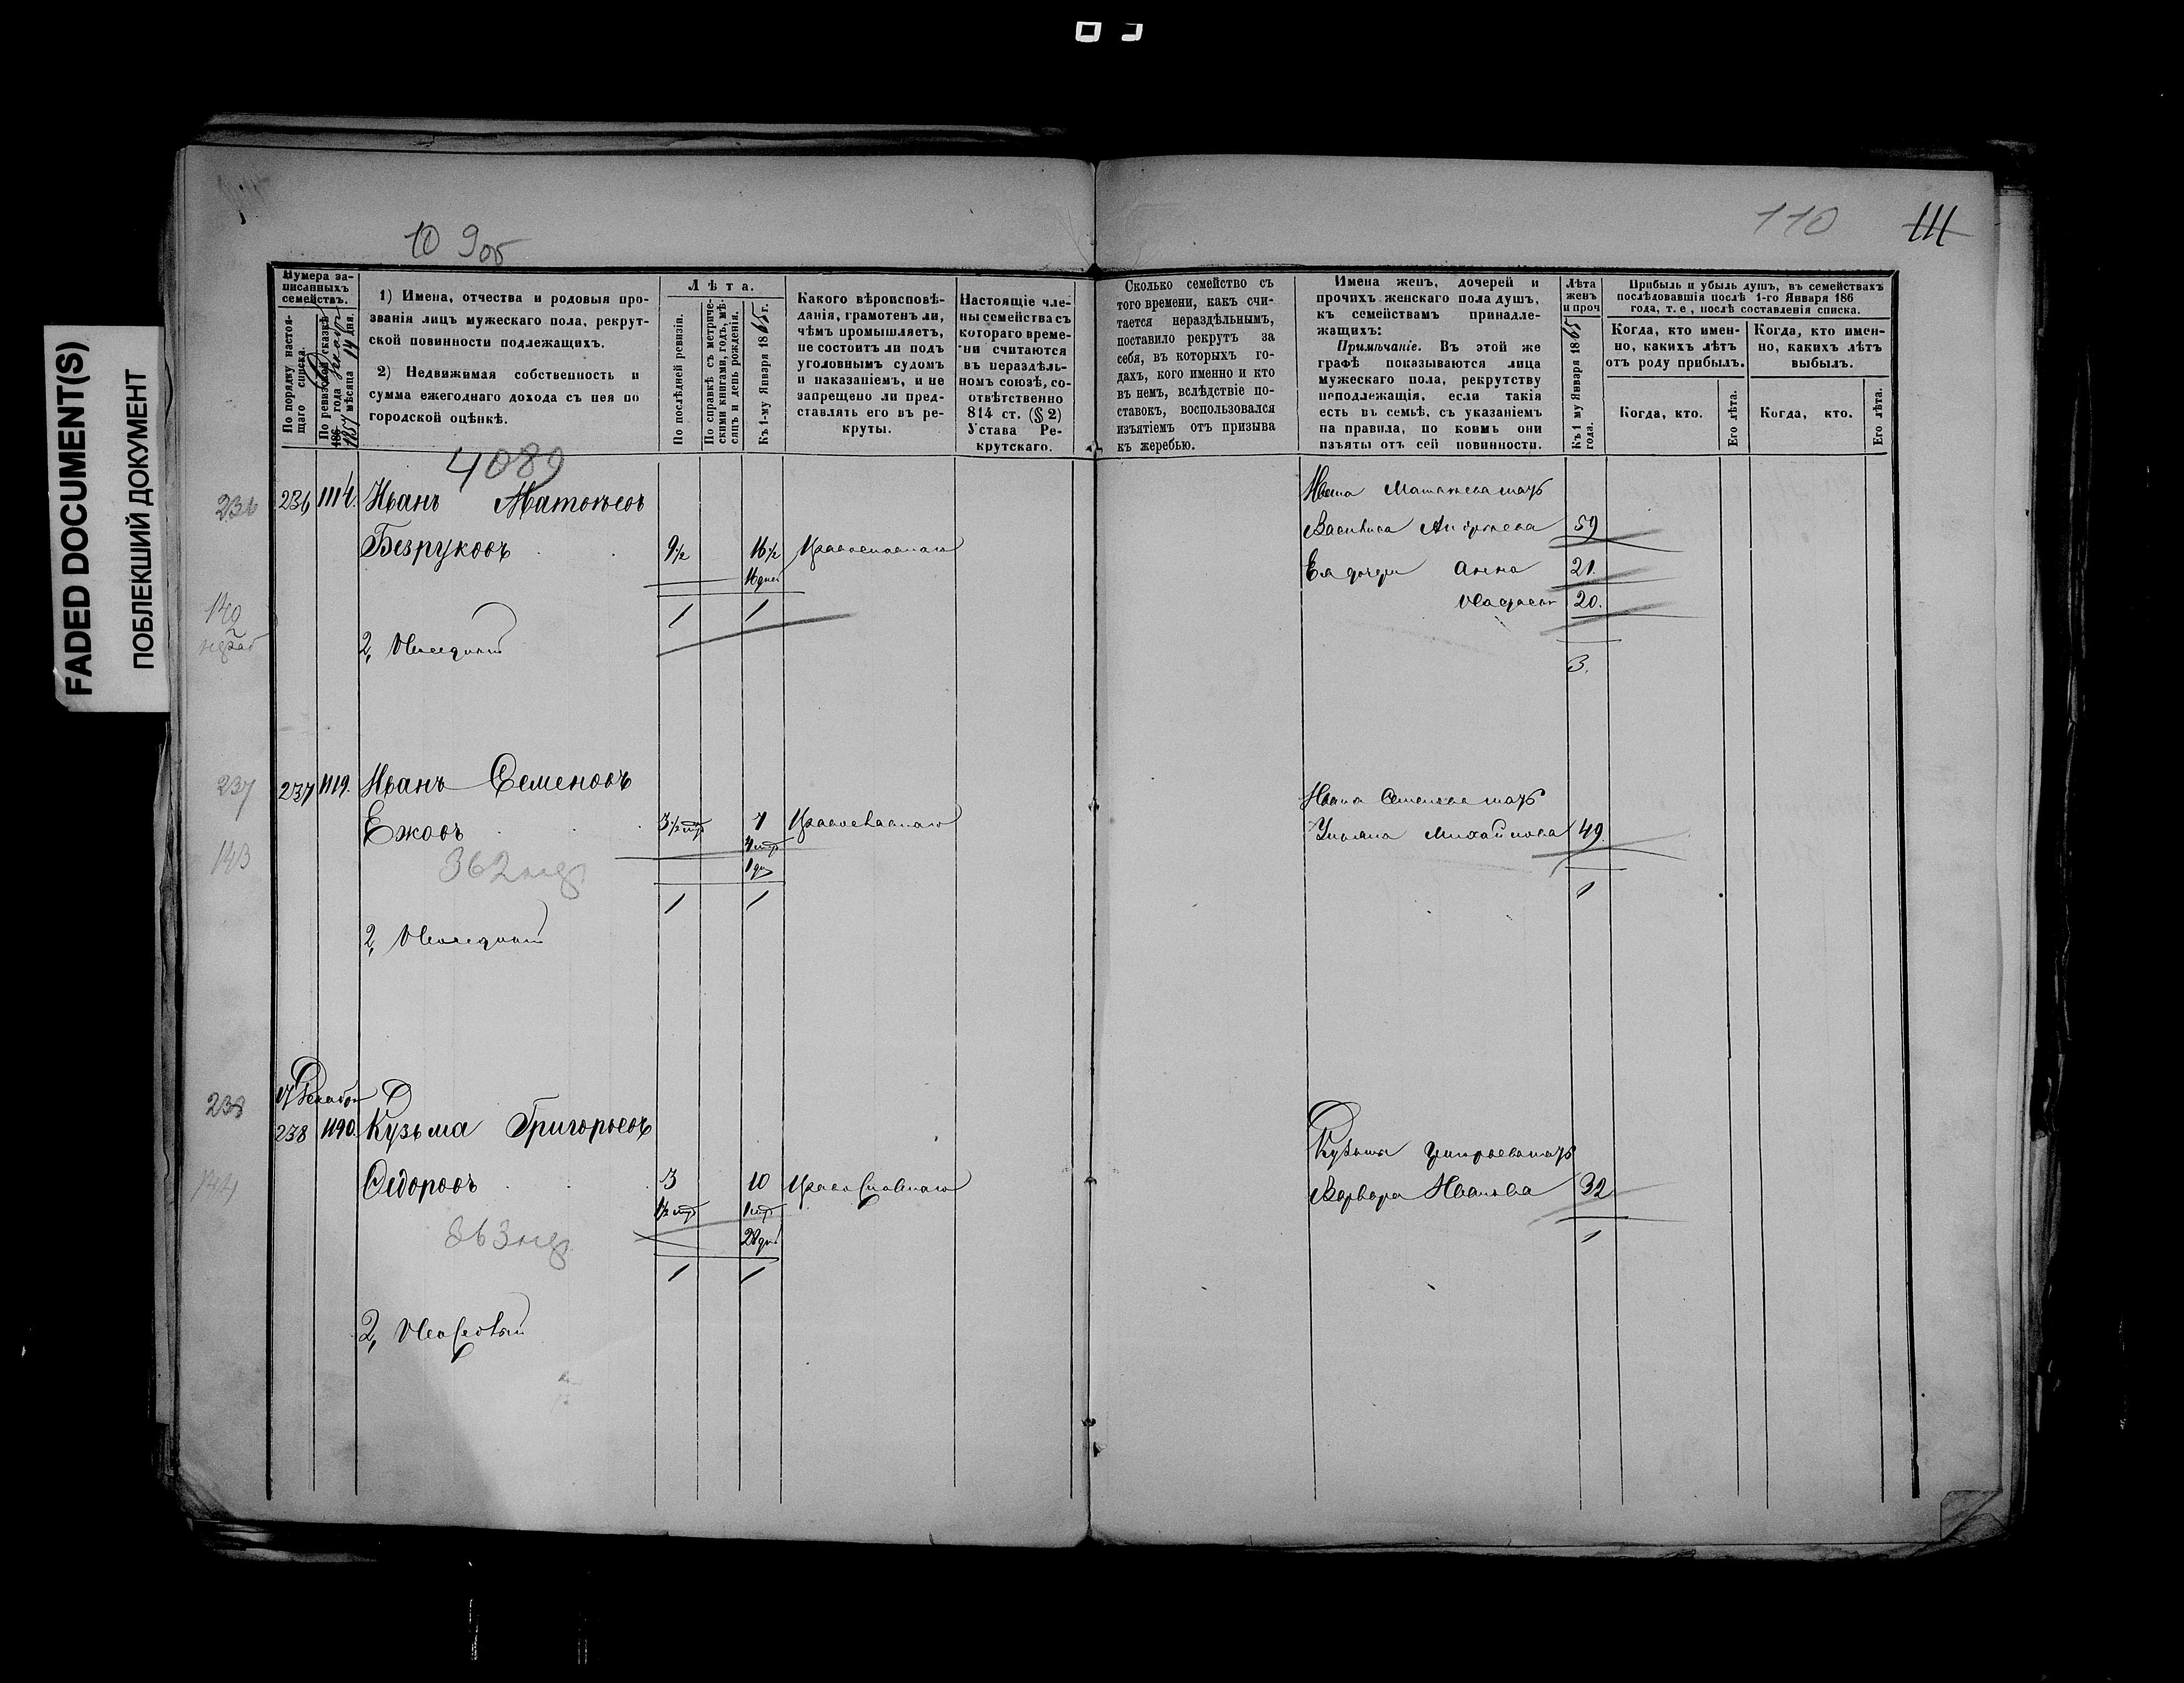 FADED DOCUMENT(S)
ПОБЛЕКШИЙ ДОКУМЕНТ
109об
110
111
Нумера за-
писанныхъ
семействъ.
По порядку настоя-
щаго списка.
По ревизской сказкѣ
186 года
1857 мѣсяца 14 дня.
1) Имена, отчества и родовыя про-
званія лицъ мужескаго пола, рекрут-
ской повинности подлежащихъ.
2) Недвижимая собственность и
сумма ежегоднаго дохода съ нея по
городской оцѣнкѣ.
Лѣта.
По послѣдней ревизіи.
По справкѣ съ метриче-
скими книгами, годъ, мѣ-
сяцъ и день рожденія.
Къ 1-му Января 1865 г.
Какого вѣроисповѣ-
данія, грамотенъ ли,
чѣмъ промышляетъ,
не состоитъ ли подъ
уголовнымъ судомъ
и наказаніемъ, и не
запрещено ли пред-
ставлять его въ ре-
круты.
Настоящіе чле-
ны семейства съ
котораго време-
ни считаются
въ нераздѣль-
номъ союзѣ, со-
отвѣтственно
814 ст. (§ 2)
Устава Ре-
крутскаго.
Сколько семейство съ
того времени, какъ счи-
тается нераздѣльнымъ,
поставило рекрутъ за
себя, въ которыхъ го-
дахъ, кого именно и кто
въ немъ, вслѣдствіе по-
ставокъ, воспользовался
изъятіемъ отъ призыва
къ жеребью.
Имена женъ, дочерей и
прочихъ женскаго пола душъ,
къ семействамъ принадле-
жащихъ:
Примѣчаніе. Въ этой же
графѣ показываются лица
мужескаго пола, рекрутству
неподлежащія, если такія
есть въ семьѣ, съ указаніемъ
на правила, по коимъ они
изъяты отъ сей повинности.
Лѣта
женъ
и проч
Къ 1 му Января 1865
года.
Прибыль и убыль душъ, въ семействахъ
послѣдовавшія послѣ 1-го Января 186
года, т. е., послѣ составленія списка.
Когда, кто имен-
но, какихъ лѣтъ
отъ роду прибылъ.
Когда, кто имен-
но, какихъ лѣтъ
выбылъ.
Когда, кто.
Его лѣта.
Когда, кто.
Его лѣта.
4089
236 236 1114. Иванъ Матвѣевъ
Безруковъ 9½ 16½ Православнаго
16 дней
1 1
2, Неседлый
Ивана Матвѣева мать
Василиса Андреева 59
Ея дочери Анна 21.
20.
3.
237 237 1119. Иванъ Семеновъ
Ежовъ 3½ мѣс 7 Православнаго
4 мѣс
1 дн
143
362
1 1
2,
Ивана Семенова мать
Ульяна Михайлова 49
1
17 Декабря
238 238 1190. Кузьма Григорьевъ
Ѳедоровъ 3 10 Православнаго
1½ мѣс 1 мѣс
28 дней
144
363
1 1
2,
Кузьмы Григорьева мать
Варвара Иванова 32
1